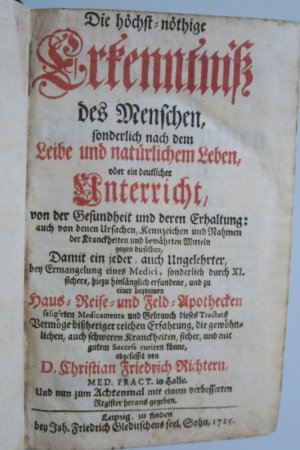 Die höchst-nöthige
Erkenntniß
des Menschen,
sonderlich nach dem
Leibe und natürlichem Leben,
oder ein deutlicher
Unterricht,
von der Gesundheit und deren Erhaltung:
auch von denen Ursachen, Kennzeichen und Nahmen
der Kranckheiten und bewährten Mitteln
gegen dieselben,
Damit ein jeder, auch Ungelehrter,
bey Ermangelung eines Medici, sonderlich durch XI.
sichere, hiezu hinlänglich erfundene, und zu
einer bequemen
Haus- Reise- und Feld-Apothecken
seligirten Medicamenta und Gebrauch dieses Tractats
Vermöge bißheriger reichen Erfahrung, die gewöhn-
lichen, auch schweren Kranckheiten, sicher, und mit
gutem Succeß curiren könne,
abgefasset von
D. Christian Friedrich Richtern,
MED. PRACT. in Halle.
Und nun zum Achtenmal mit einem verbesserten
Register heraus gegeben.
Leipzig, zu finden
bey Joh. Friedrich Gleditschens seel. Sohn, 1725.